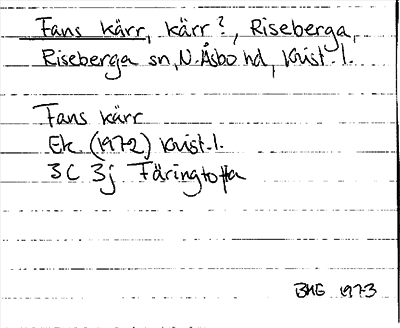 Fans kärr, kärr?, Riseberga,
Riseberga sn, N. Åsbo hd, Krist. l.
Fans kärr
Ek (1972) Krist. l.
3C 3j Färingtofta
BHG 1973